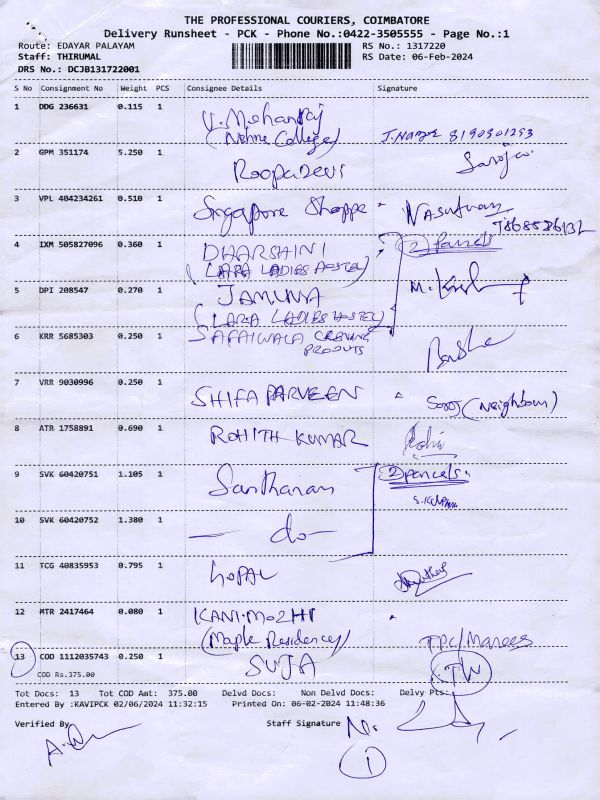 THE PROFESSIONAL COURIERS, COIMBATORE
Delivery Runsheet - PCK - Phone No.:0422-3505555 - Page No.:1
Route: EDAYAR PALAYAM RS No.: 1317220
Staff: THIRUMAL RS Date: 06-Feb-2024
DRS No.: DCJB131722001
S No Consignment No Weight PCS Consignee Details Signature
1 DDG 236631 0.115 1 V. Mohanraj
(Nehru College) 8190901293
2 GPM 351174 5.250 1 Roopa Devi Saroja
3 VPL 404234261 0.510 1 Singapore Shoppe -
4 IXM 505827096 0.360 1 DHARSHINI (2) Parcels
(LARA LADIES HOSTEL)
5 DPI 208547 0.270 1 JAMUNA
(LARA LADIES HOSTEL)
6 KRR 5685303 0.250 1 SAFAIWALA
7 VRR 9030996 0.250 1 SHIFA PARVEEN (Neighbour)
8 ATR 1758891 0.690 1 ROHITH KUMAR
9 SVK 60420751 1.105 1 Santharam (2) parcels.
10 SVK 60420752 1.380 1 — do —
11 TCG 40835953 0.795 1 GOPAL
12 MTR 2417464 0.080 1 KANI-MOZHI
(Maple Residency)
13 COD 1112035743 0.250 1 SUJA
COD Rs.375.00
Tot Docs: 13 Tot COD Amt: 375.00 Delvd Docs: Non Delvd Docs: Delvy Pts:
Entered By :KAVIPCK 02/06/2024 11:32:15 Printed On: 06-02-2024 11:48:36
Verified By Staff Signature
1